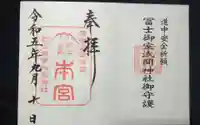 道中安全祈願
冨士御室浅間神社御守護
奉拝
本宮
令和五年九月六日